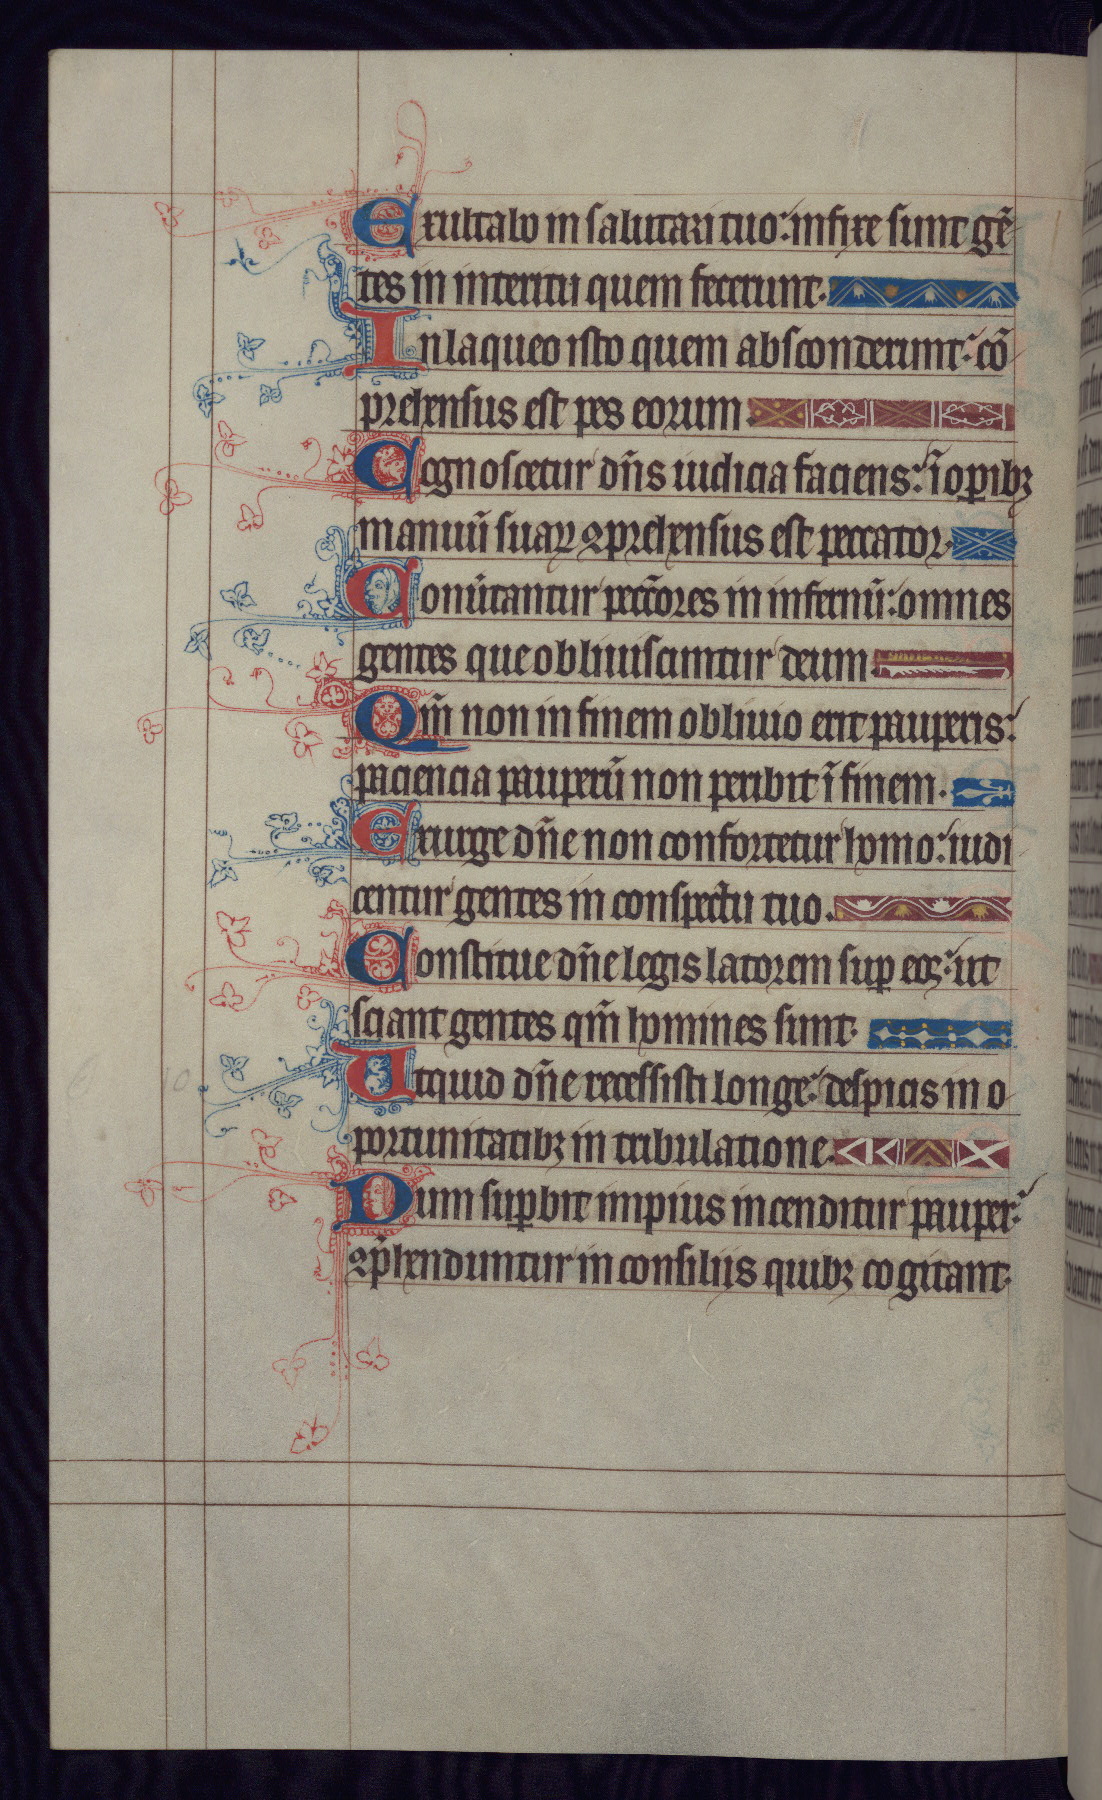 Exultabo in salutari tuo: infixe sunt gē
tes in interitu quem fecerunt.
In laqueo isto quem absconderunt: cō
prehensus est pes eorum.
Cognoscetur dn̄s iudicia faciens: ī oꝑibꝫ
manuū suaꝝ ꝯprehensus est peccator.
Conūtantur pecc̄ores in infernū: omnes
gentes que obliuiscuntur deum.
Qm̄ non in finem obliuio erit pauperis:
paciencia pauperū non peribit ī finem.
Exurge dn̄e non confortetur homo: iudi
centur gentes in conspectu tuo.
Constitue dn̄e legis latorem suꝑ eoꝫ: ut
sciant gentes qm̄ homines sunt.
Utquid dn̄e recessisti longe: despicis in o
portunitatibꝫ in tribulatione.
Dum suꝑbit impius incenditur pauper:
ꝯp̄henduntur in consilijs quibꝫ cogitant.